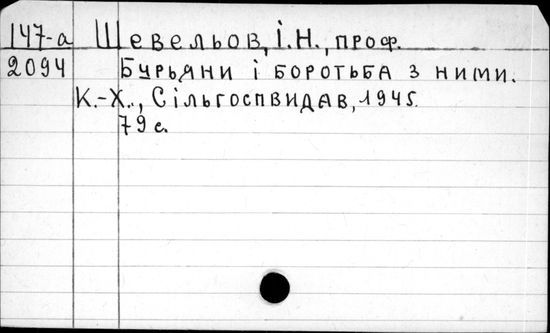 147-а Шевельов, І.Н., проф.
2094 Бурьяни і боротьба з ними.
К.-Х., Сільгоспвидав, 1945.
79 с.